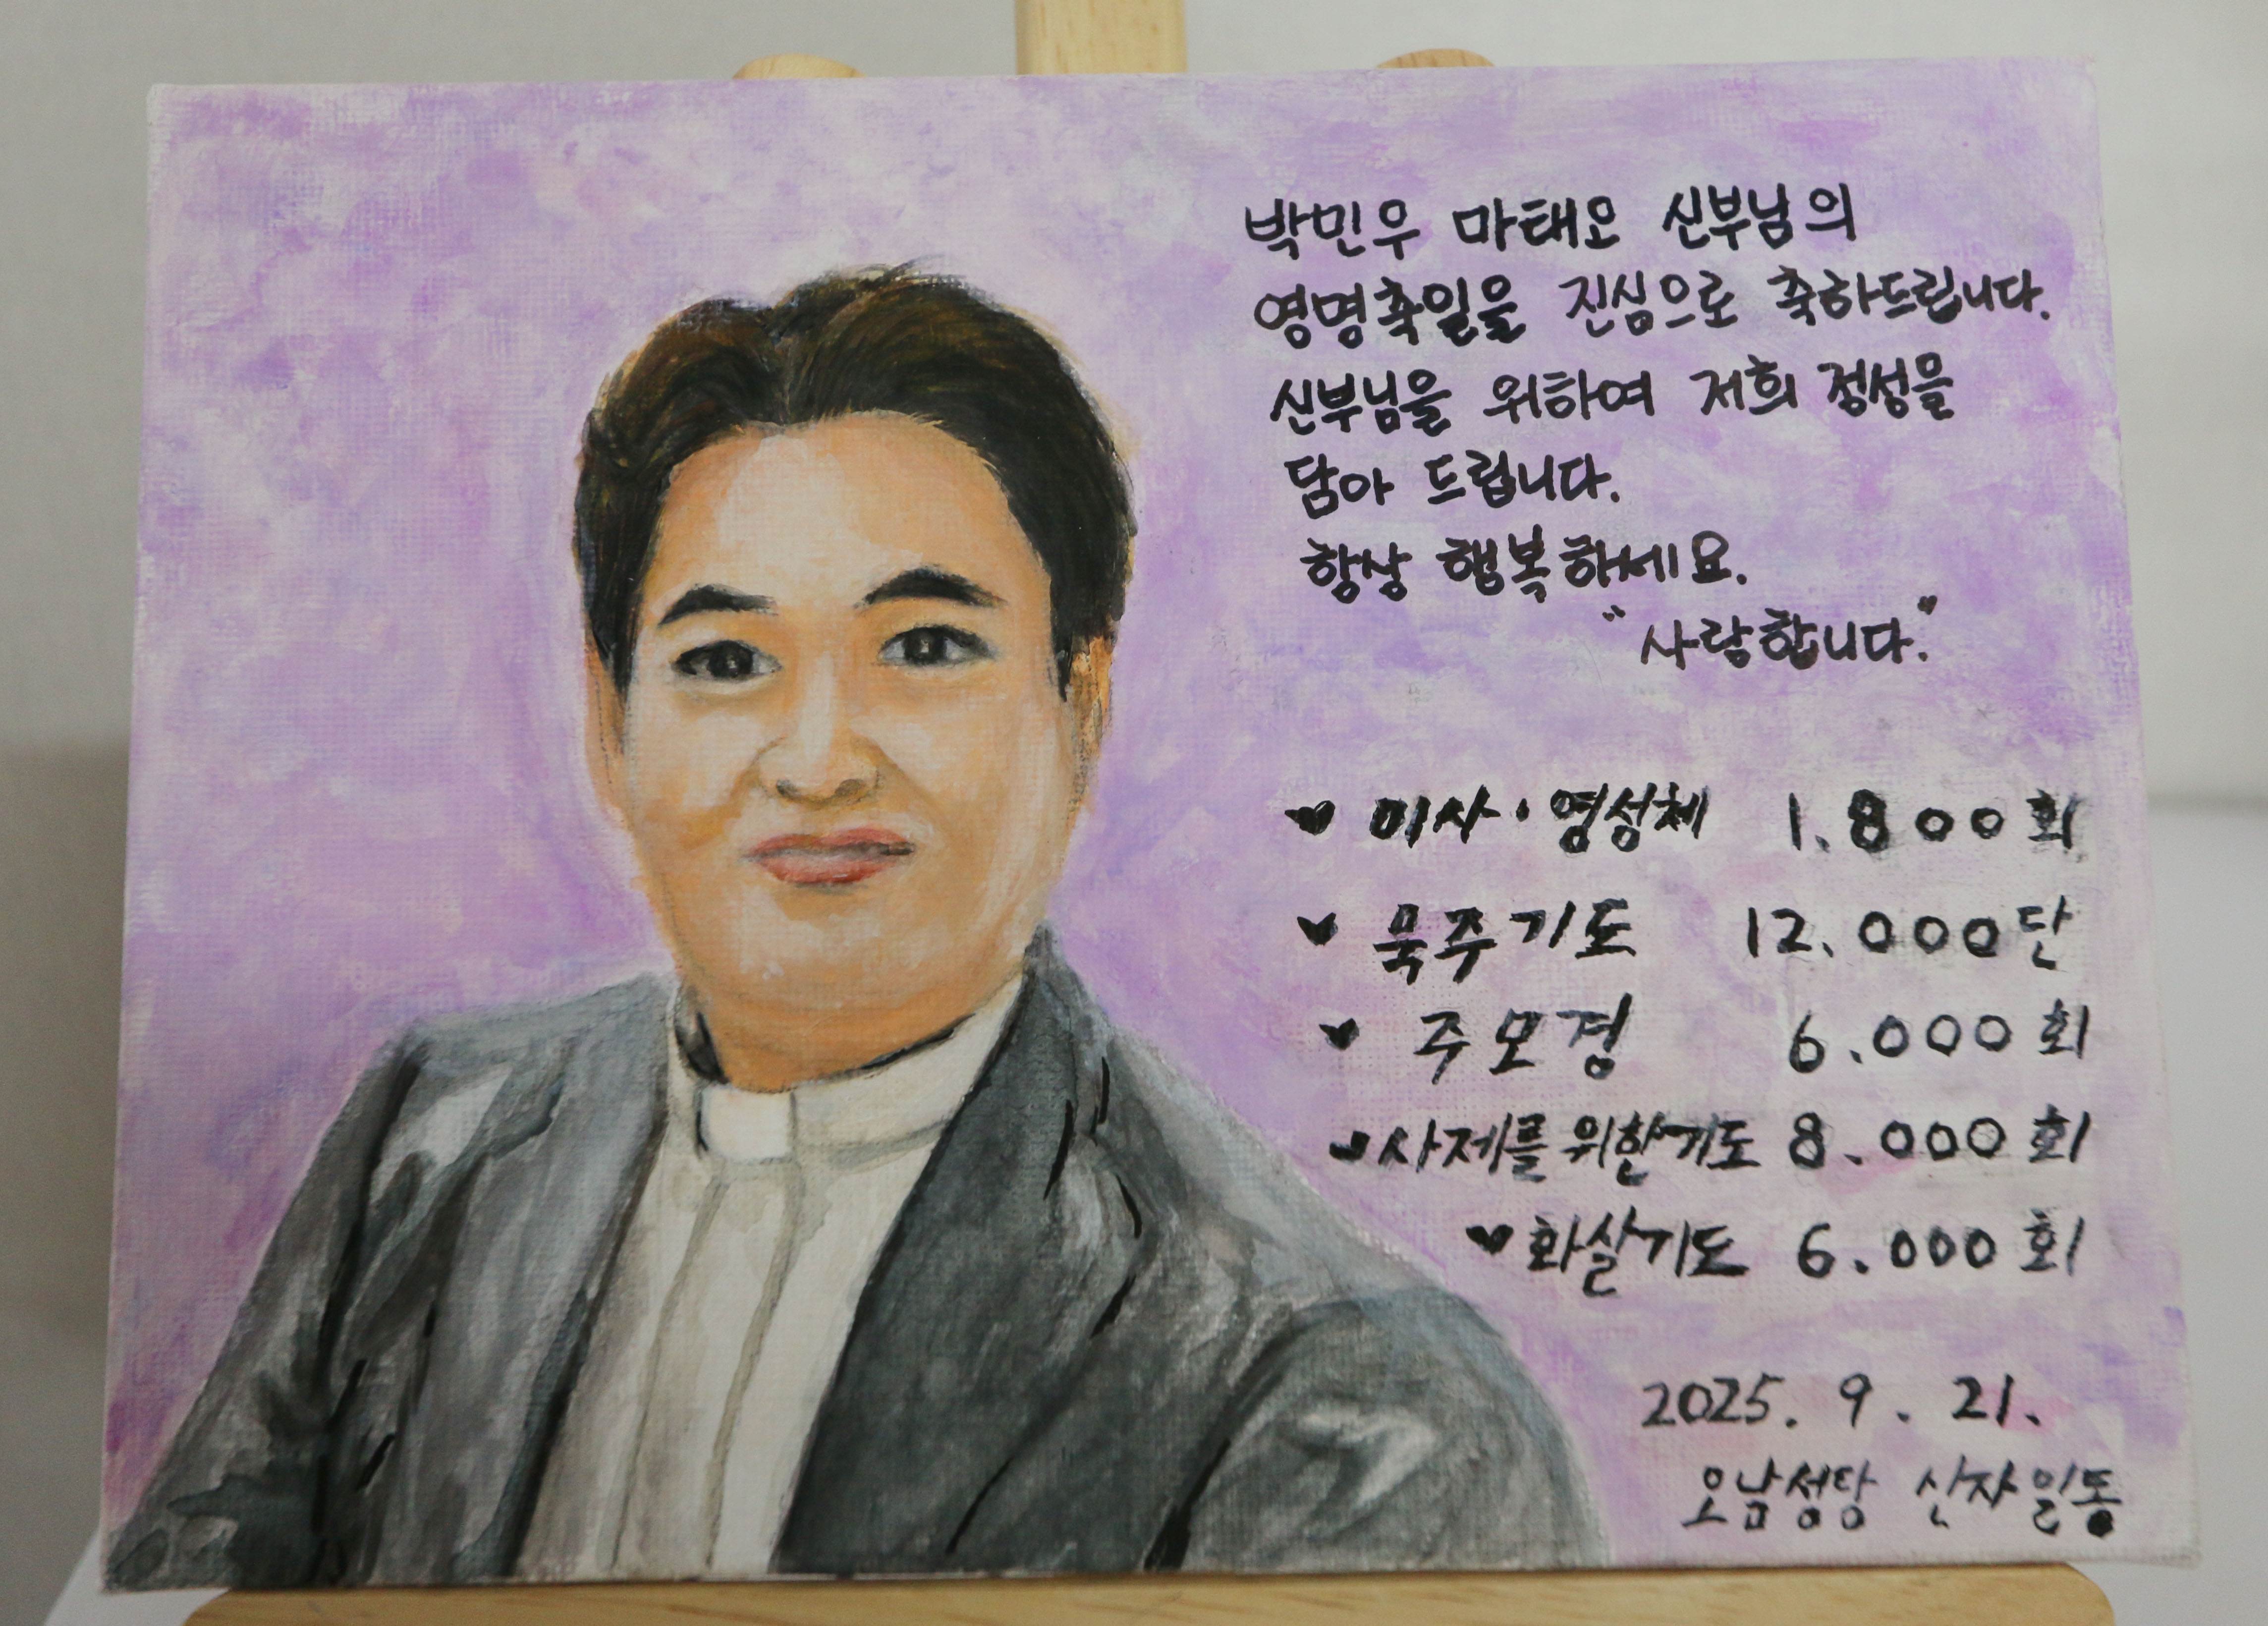 박민우 마태오 신부님의
영명축일을 진심으로 축하드립니다.
신부님을 위하여 저희 정성을
담아 드립니다.
항상 행복하세요.
"사랑합니다."
♥ 미사·영성체 1.800회
♥ 묵주기도 12.000단
♥ 주모경 6.000회
♥ 사제를 위한기도 8.000회
♥ 화살기도 6.000회
2025. 9. 21.
오남성당 신자일동